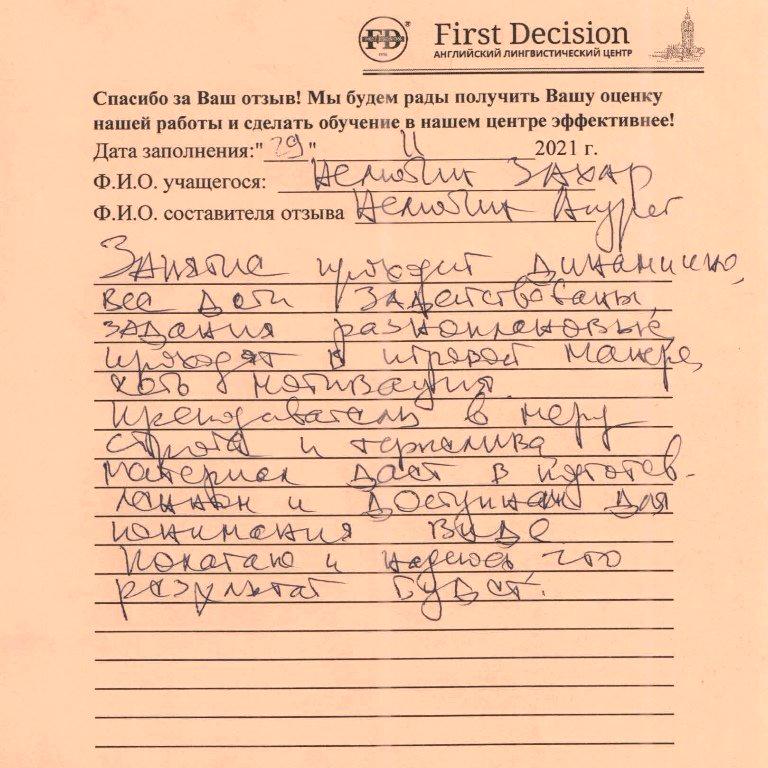 FD
First Decision
АНГЛИЙСКИЙ ЛИНГВИСТИЧЕСКИЙ ЦЕНТР
Спасибо за Ваш отзыв! Мы будем рады получить Вашу оценку
нашей работы и сделать обучение в нашем центре эффективнее!
Дата заполнения:"29" 11 2021 г.
Ф.И.О. учащегося: Нелюбин Захар
Ф.И.О. составителя отзыва Нелюбин Андрей
Занятие проходит динамично,
все дети задействованы,
задания разноплановые,
проходят в игровой манере,
есть мотивация.
Преподаватель в меру
строга и терпелива
материал даёт в подготов-
ленном и доступном для
понимания виде
Полагаю и надеюсь что
результат будет.